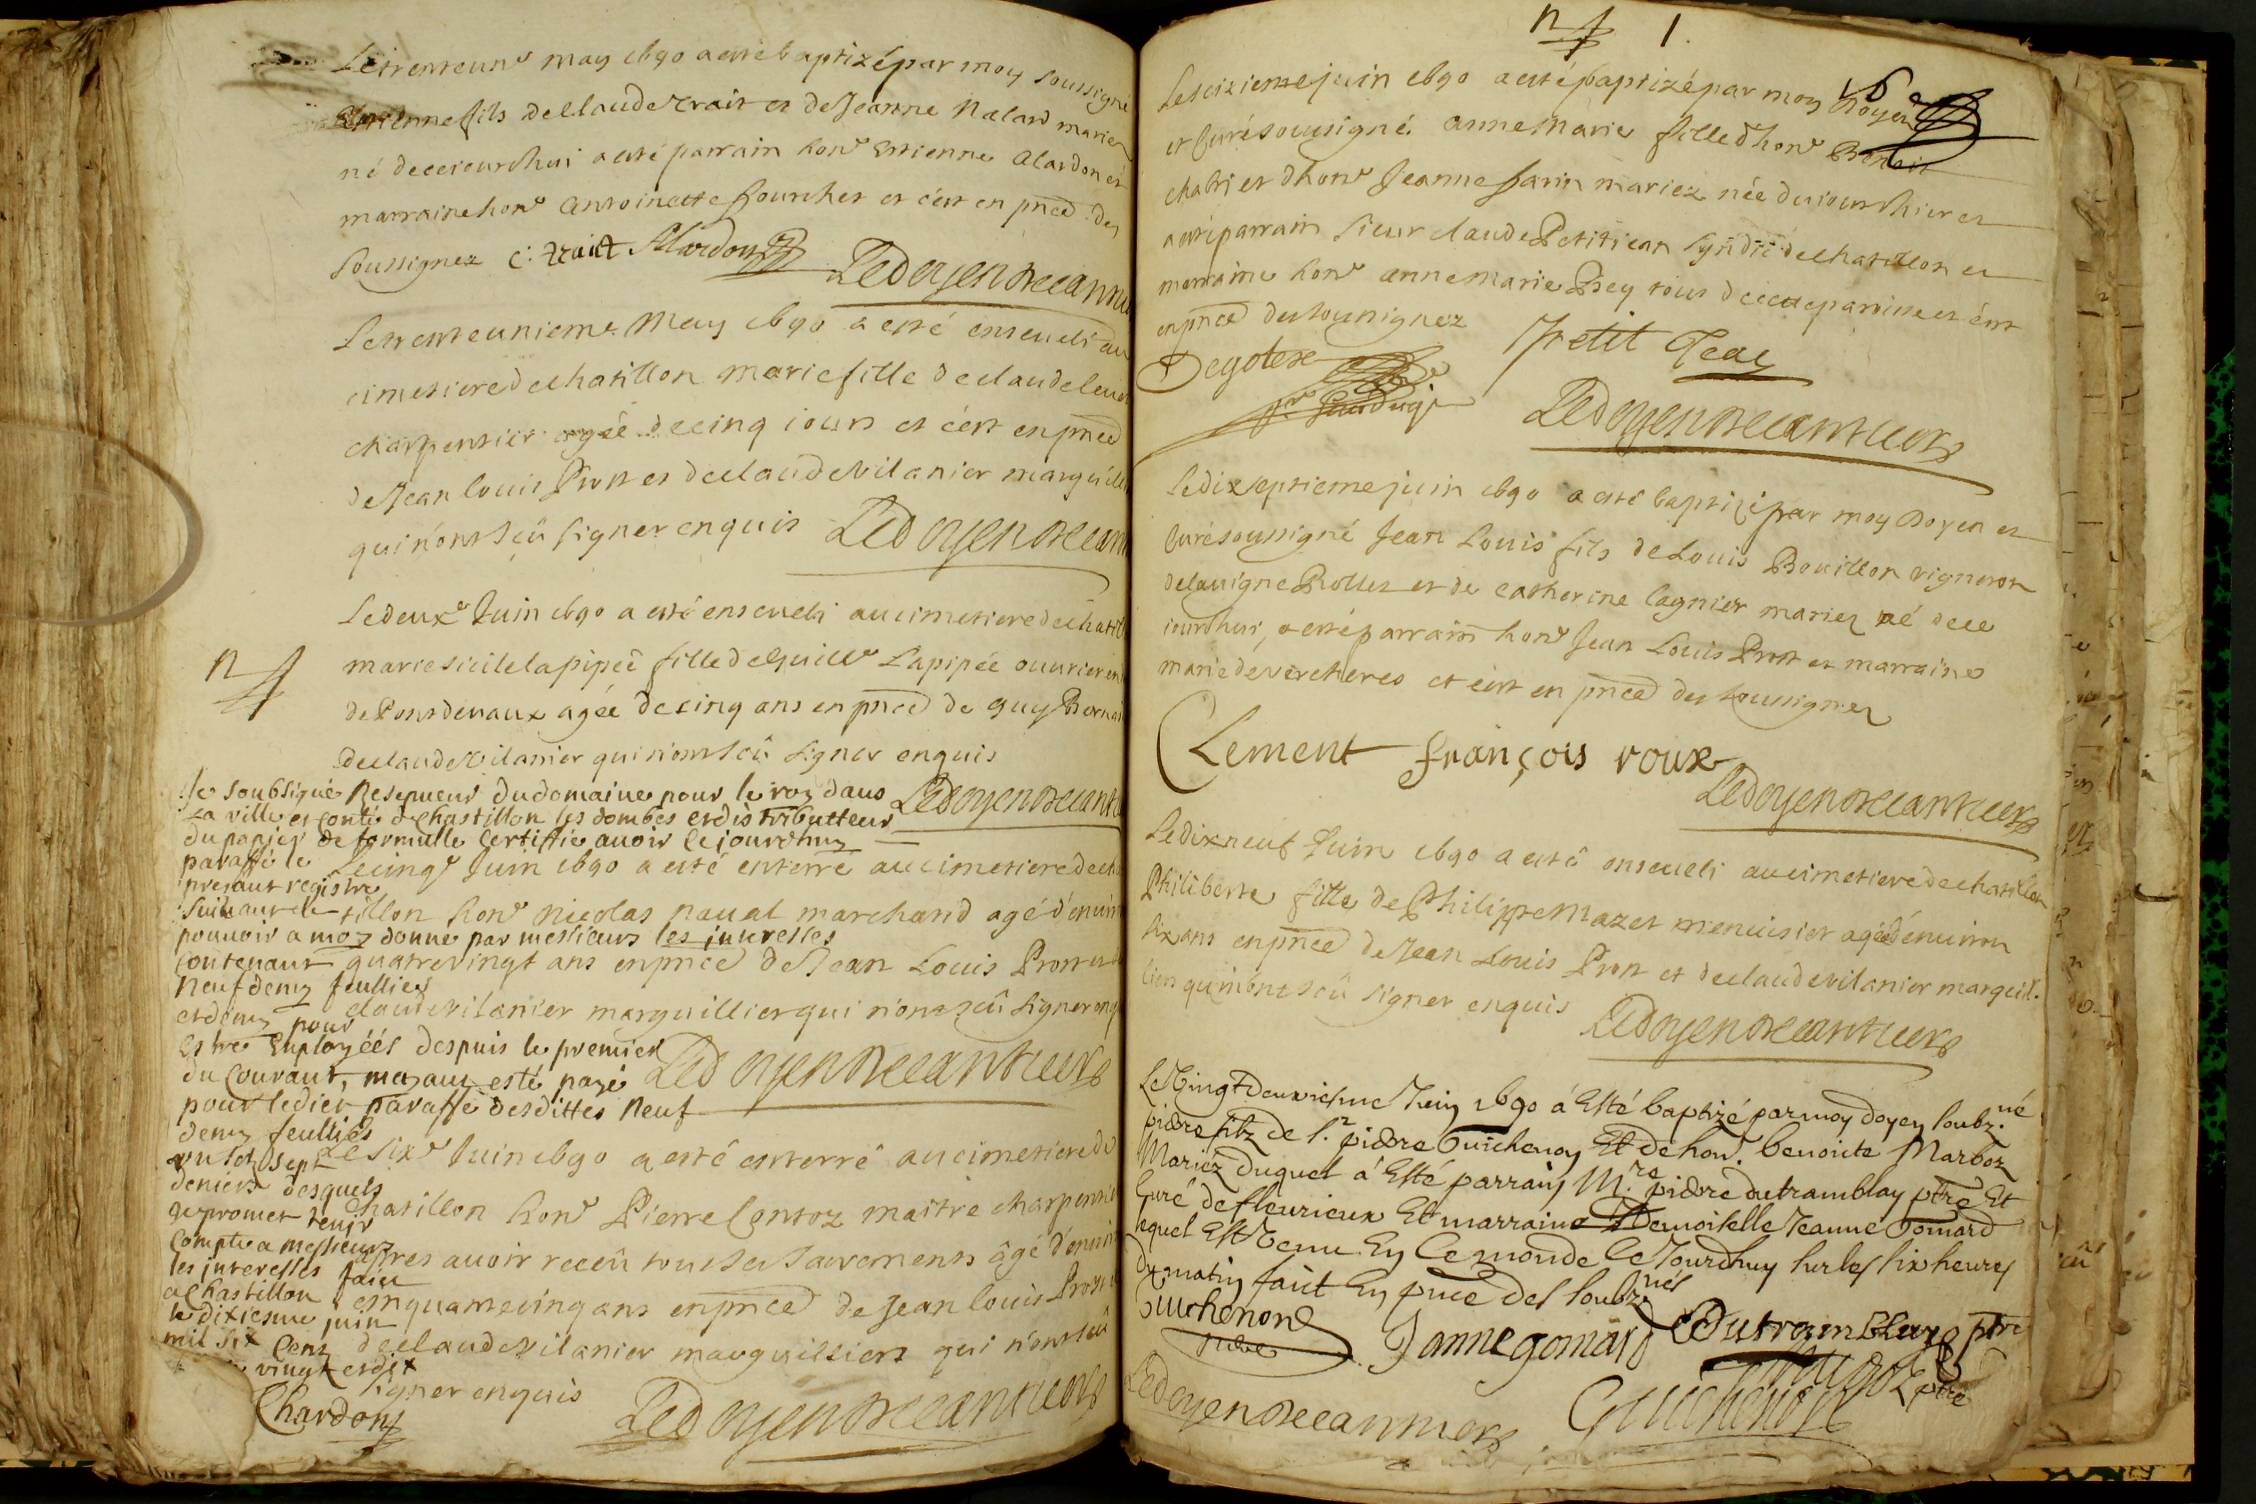 Le trente un.e may 1690 a esté baptizé par moy soussigné
Estienne fils de Claude Trait et de Jeanne Nalard mariez
né de ce jourdhui a esté parrain hon.e Estienne Alardon et
marraine hon.e Antoinette fourcher et c'est en pnce des
soussignez C: trait Alardon
Le doyen De
Le trente unieme May 1690 a esté enseveli au
cimetiere de chatillon marie fille de claude
charpentier agée de cinq iours et c'est en pnce
de Jean louis Prost et de claude Vilanier marguill
qui n'ont sçû signer enquis Le doyen De
Le deux.e Juin 1690 a esté enseveli au cimetiere de chatil
n
marie sicile lapipée fille de Guill.e Lapipée ouvrier
de Pontdevaux agée de cinq ans en pnce de guy
de claude Vilanier qui n'ont sçû signer enquis
Le doyen De
Je soubsigné Resepueur du domaine pour le roy dans
La ville et Conté de Chastillon les dombes et distributteur
du papier de formulle Certiffie avoir ce jourdhuy
paraffé le
presant registre
suivant le
pouvoir a moy donné par messieurs les interesses
Contenant
Neuf demy feullies
et demy pour
Estre Employéés despuis le premier
du Courant, m'ayant esté payé
pour ledict paraffe desdittes Neuf
demy feullies
vn sol sept
deniers desquels
je promet tenir
Compte a Messieurs
les interesses faict
a Chastillon
le dixiesme juin
mil six Cens
vingt et dix
Chardon
Le cinq.e Juin 1690 a esté enterré au cimetiere de cha
tillon hon.e Nicolas naual marchand agé d'enuiron
quatrevingt ans en pnce de Jean Louis Prost et
claude vilanier marguillier qui n'ont sçû signer enq
Le doyen De
Le six.e Juin 1690 a esté enterré au cimetiere de
chatillon hon.e Pierre Contoz maitre charpentier
apres avoir receû tous les sacrements âgé d'enuiron
cinquante cinq ans en pnce de Jean louis Prost
de claude Vilanier marguilliers qui n'ont sçû
signer enquis Le doyen De
n 1.
Le seizieme juin 1690 a esté baptizé par moy Doyen
et Curé soussigné anne Marie fille d'hon.e Benoit
chabri et d'hon.e Jeanne farin mariez née du iour d'hier et
a esté parrain sieur claude Petitiean syndic de chatillon et
marraine hon.e anne Marie Psey tous de cette parroisse et c'est
en pnce des soussignez
petit Jean
Le doyen De
Le dixseptieme juin 1690 a esté baptizé par moy Doyen et
Curé soussigné Jean Louis fils de Louis Bouillon vigneron
de la vigne Rollet et de catherine Cagnier mariez né de ce
iourdhui, a esté parrain hon.e Jean Louis Prost et marraine
marie de vercheres et c'est en pnce des soussignez
Clement françois roux
Le doyen De
Le dixneuf Juin 1690 a esté enseveli au cimetiere de chatillon
Philiberte fille de Philippe Mazet menuisier agée d'enuiron
six ans en pnce de Jean Louis Prost et de claude vilanier marguil.
liers qui n'ont sçû signer enquis
Le doyen De
Le Vingt deuxiesme Juin 1690 á Esté baptizé par moy doyen soubz.né
pierre filz de s.r pierre Guichenon Et de hon. benoite Marboz
Mariéz duquel á Esté parrain M.re pierre dutramblay ptre Et
Curé de fleurieux Et marraine Demoiselle Jeanne Gomard
lequel Est Venu En Ce monde Ce Jourdhuy sur les six heures
du matin fait En pnce des soubznés
Guichenon Janne gomard Dutramblay ptre
Le doyen De
Guichenon